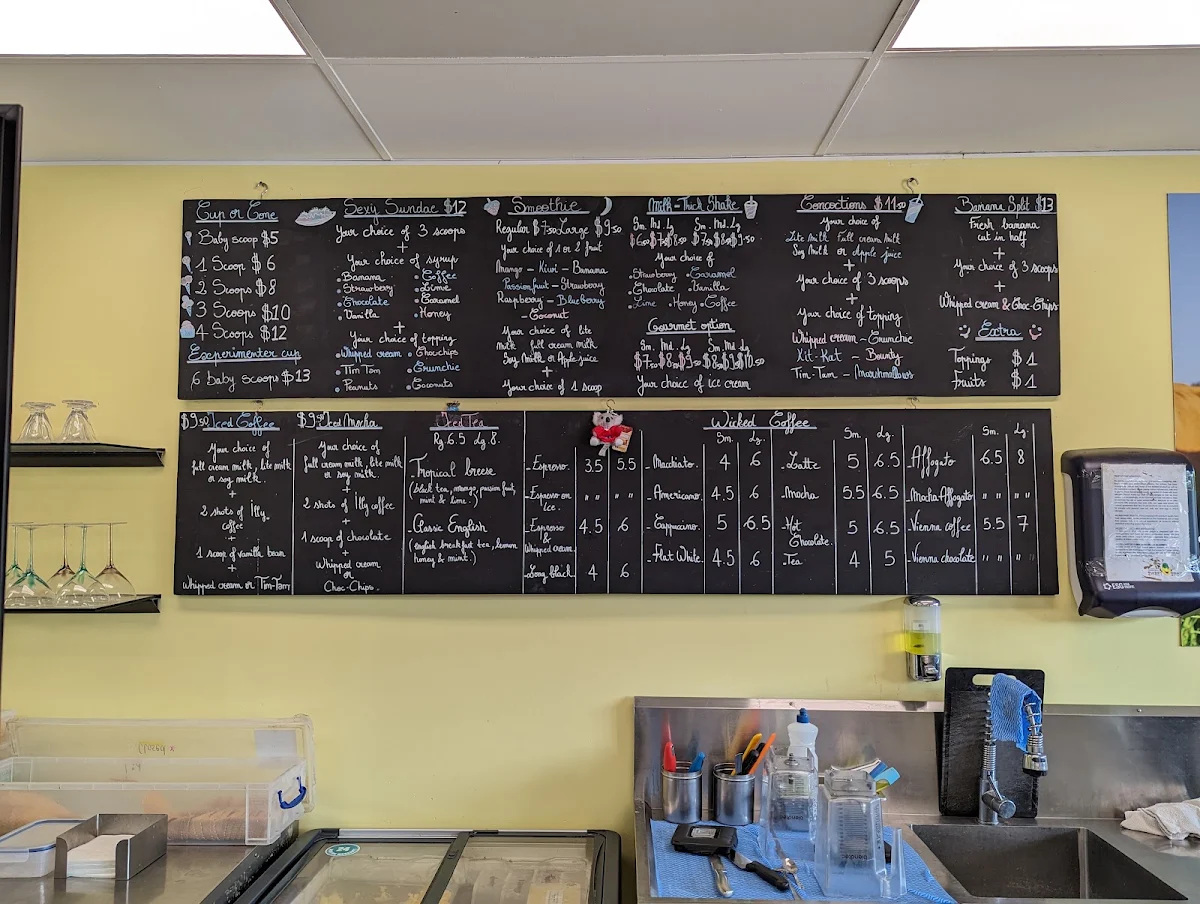 Cup or Cone
Baby scoop $5
1 Scoop $6
2 Scoops $8
3 Scoops $10
4 Scoops $12
Experimenter cup
6 Baby scoops $13
Sexy Sundae $12
Your choice of 3 scoops
+
Your choice of syrup
• Banana • Coffee
• Strawberry • Lime
• Chocolate • Caramel
• Vanilla • Honey
+
Your choice of topping
• Whipped cream • Choc-chips
• Tim Tam • Crunchie
• Peanuts • Coconuts
Smoothie
Regular $7.50 Large $9.50
Your choice of 1 or 2 fruit
Mango - Kiwi - Banana
Passionfruit - Strawberry
Raspberry - Blueberry
- Coconut
Your choice of lite
milk full cream milk
Soy Milk or Apple juice
+
Your choice of 1 scoop
Milk-Thick Shake
Sm. Md. Lg Sm. Md. Lg
Your choice of
Strawberry Caramel
Chocolate Vanilla
Lime Honey Coffee
Gourmet option
Sm. Md. Lg Sm. Md. Lg
Your choice of ice cream
Concoctions $11.50
Your choice of
Lite Milk Full cream Milk
Soy Milk or Apple juice
+
Your choice of 3 scoops
+
Your choice of topping
Whipped cream - Crunchie
Kit-Kat - Bounty
Tim-Tam - Marshmallows
Banana Split $13
Fresh banana
cut in half
+
Your choice of 3 scoops
+
Whipped cream & Choc-Chips
Extra
Toppings $1
Fruits $1
$9.50 Iced Coffee
Your choice of
full cream milk, lite milk
or soy milk.
+
2 shots of Illy
coffee
+
1 scoop of vanilla bean
+
Whipped cream or Tim-Tam
Iced Mocha
Your choice of
full cream milk, lite milk
or soy milk.
+
2 shots of Illy coffee
+
1 scoop of chocolate
+
Whipped cream
or
Choc-Chips.
Iced Tea
Rg. 6.5 Lg. 8.
Tropical breeze
(black tea, mango, passion fruit,
mint & lime.)
Classic English
(english breakfast tea, lemon
honey & mint.)
Wicked Coffee
- Espresso. 3.5 5.5
- Espresso on " " " "
ice.
- Espresso 4.5 6
&
Whipped cream.
- Long black 4 6
Sm. Lg.
- Macchiato. 4 6
- Americano. 4.5 6
- Cappucino. 5 6.5
- Flat White. 4.5 6
Sm. Lg.
- Latte 5 6.5
- Mocha 5.5 6.5
- Hot 5 6.5
Chocolate.
- Tea 4 5
Sm. Lg.
- Affogato 6.5 8
- Mocha Affogato " " " "
- Vienna coffee 5.5 7
- Vienna chocolate " " " "